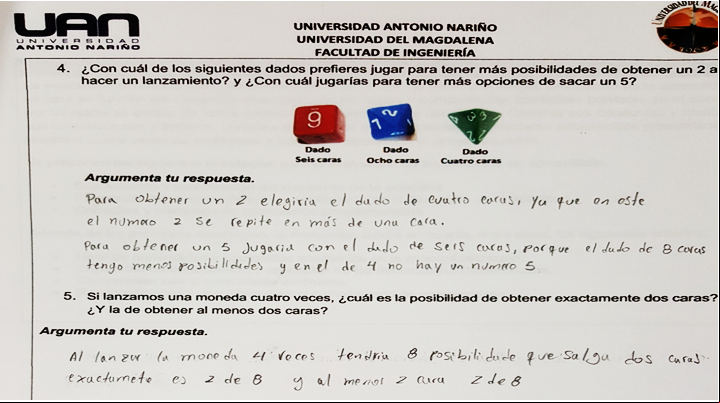 UAN
UNIVERSIDAD
ANTONIO NARIÑO
UNIVERSIDAD ANTONIO NARIÑO
UNIVERSIDAD DEL MAGDALENA
FACULTAD DE INGENIERÍA
4. ¿Con cuál de los siguientes dados prefieres jugar para tener más posibilidades de obtener un 2 a
hacer un lanzamiento? y ¿Con cuál jugarías para tener más opciones de sacar un 5?
Dado Dado Dado
Seis caras Ocho caras Cuatro caras
Argumenta tu respuesta.
Para obtener un 2 elegiria el dado de cuatro caras, ya que en este
el numero 2 se repite en más de una cara.
Para obtener un 5 Jugaria con el dado de seis caras, porque el dado de 8 caras
tengo menos posibilidades y en el de 4 no hay un numero 5
5. Si lanzamos una moneda cuatro veces, ¿cuál es la posibilidad de obtener exactamente dos caras?
¿Y la de obtener al menos dos caras?
Argumenta tu respuesta.
Al lanzar la moneda 4 veces tendria 8 posibilidade que salga dos caras.
exactamete es 2 de 8 y al menos 2 cara 2 de 8